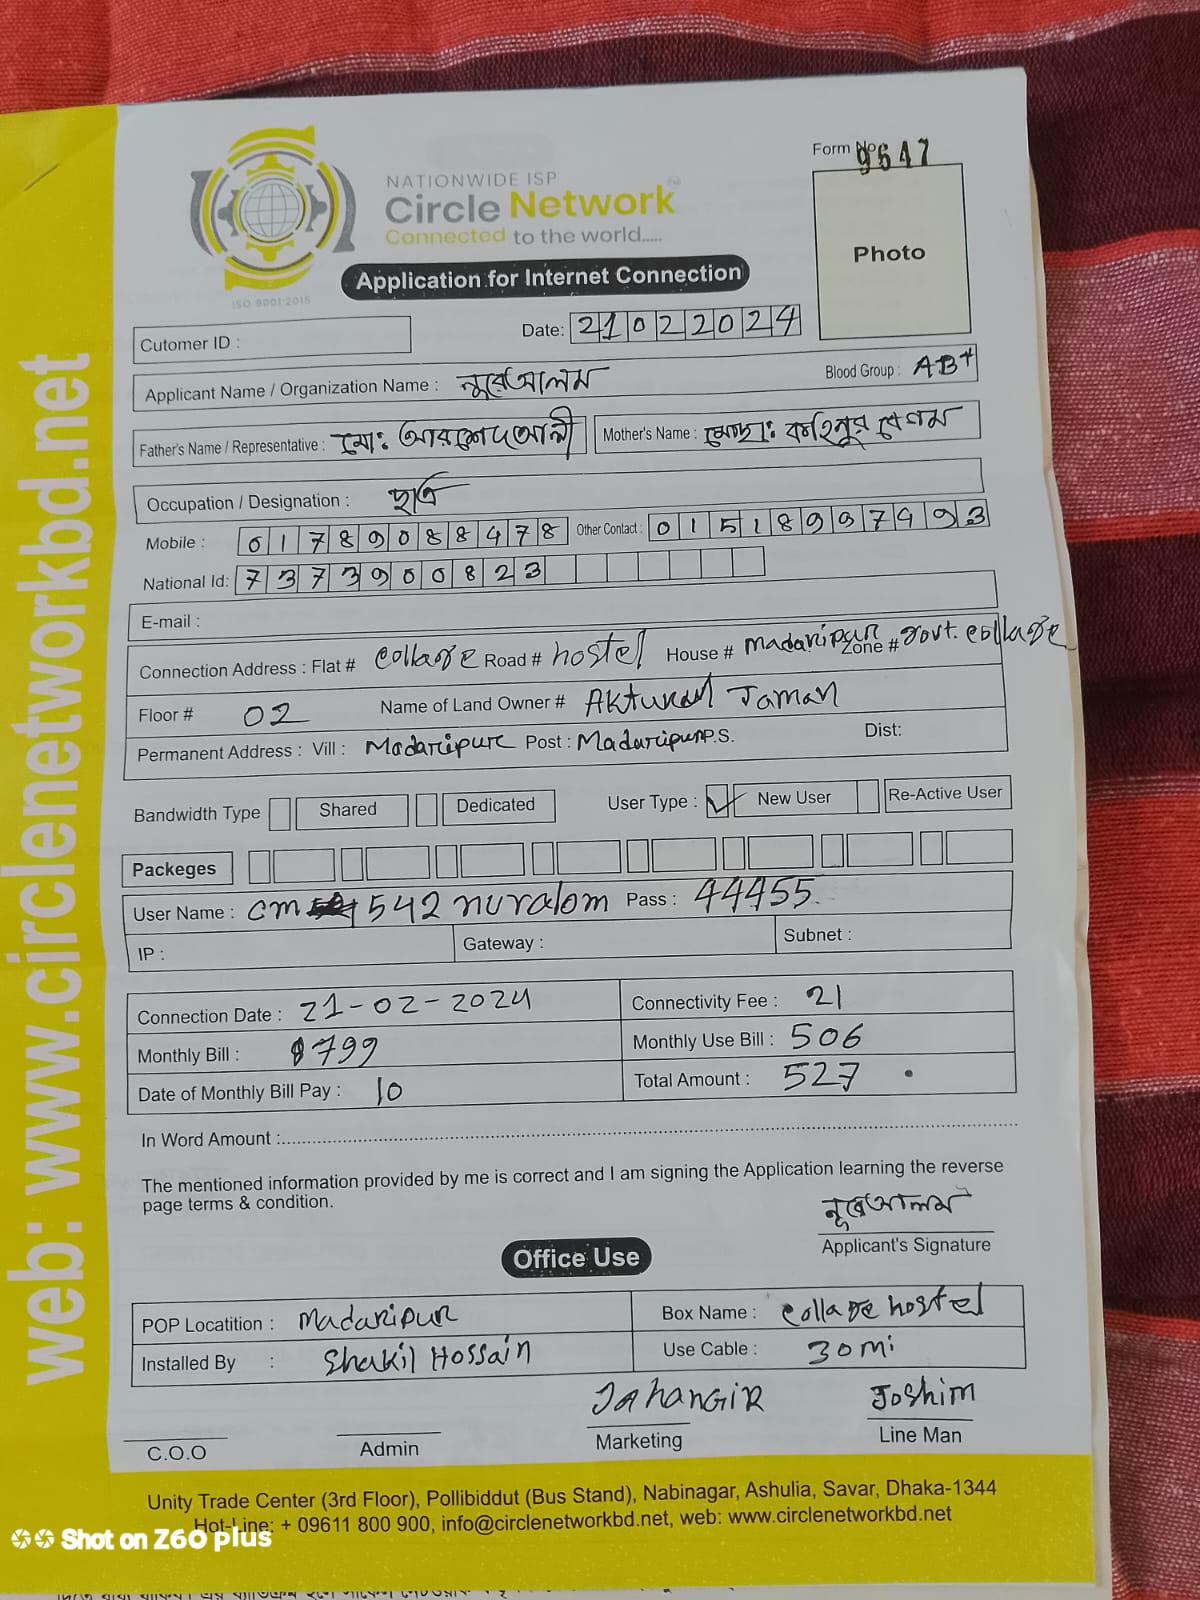 Form No. 9647
NATIONWIDE ISP
Circle Network
Connected to the world.....
ISO 9001:2015
Application for Internet Connection
Photo
Cutomer ID :
Date: 21022024
Applicant Name / Organization Name : নুরে আলম
Blood Group : AB+
Father's Name / Representative : মো: আরশেদ আলী
Mother's Name : মোছা: কহিনুর বেগম
Occupation / Designation : ছাত্র
Mobile : 01789088478 Other Contact : 01518997493
National Id: 7373900823
E-mail :
Connection Address : Flat # collage Road # hostel House # madaripur Zone # govt. collage
Floor # 02 Name of Land Owner # Jaman
Permanent Address : Vill : Madaripur Post : Madaripur P.S. Dist:
Bandwidth Type Shared Dedicated User Type : ✓ New User Re-Active User
Packeges
User Name : cm 542 nuralom Pass : 44455
IP : Gateway : Subnet :
Connection Date : 21-02-2024 Connectivity Fee : 21
Monthly Bill : 799 Monthly Use Bill : 506
Date of Monthly Bill Pay : 10 Total Amount : 527
In Word Amount :
The mentioned information provided by me is correct and I am signing the Application learning the reverse
page terms & condition.
নুরে আলম
Applicant's Signature
Office Use
POP Locatition : Madaripur Box Name : collage hostel
Installed By : Shakil Hossain Use Cable : 30 Mi
JAhanGiR Joshim
C.O.O Admin Marketing Line Man
Unity Trade Center (3rd Floor), Pollibiddut (Bus Stand), Nabinagar, Ashulia, Savar, Dhaka-1344
Hot-Line: + 09611 800 900, info@circlenetworkbd.net, web: www.circlenetworkbd.net
web: www.circlenetworkbd.net
Shot on Z60 plus